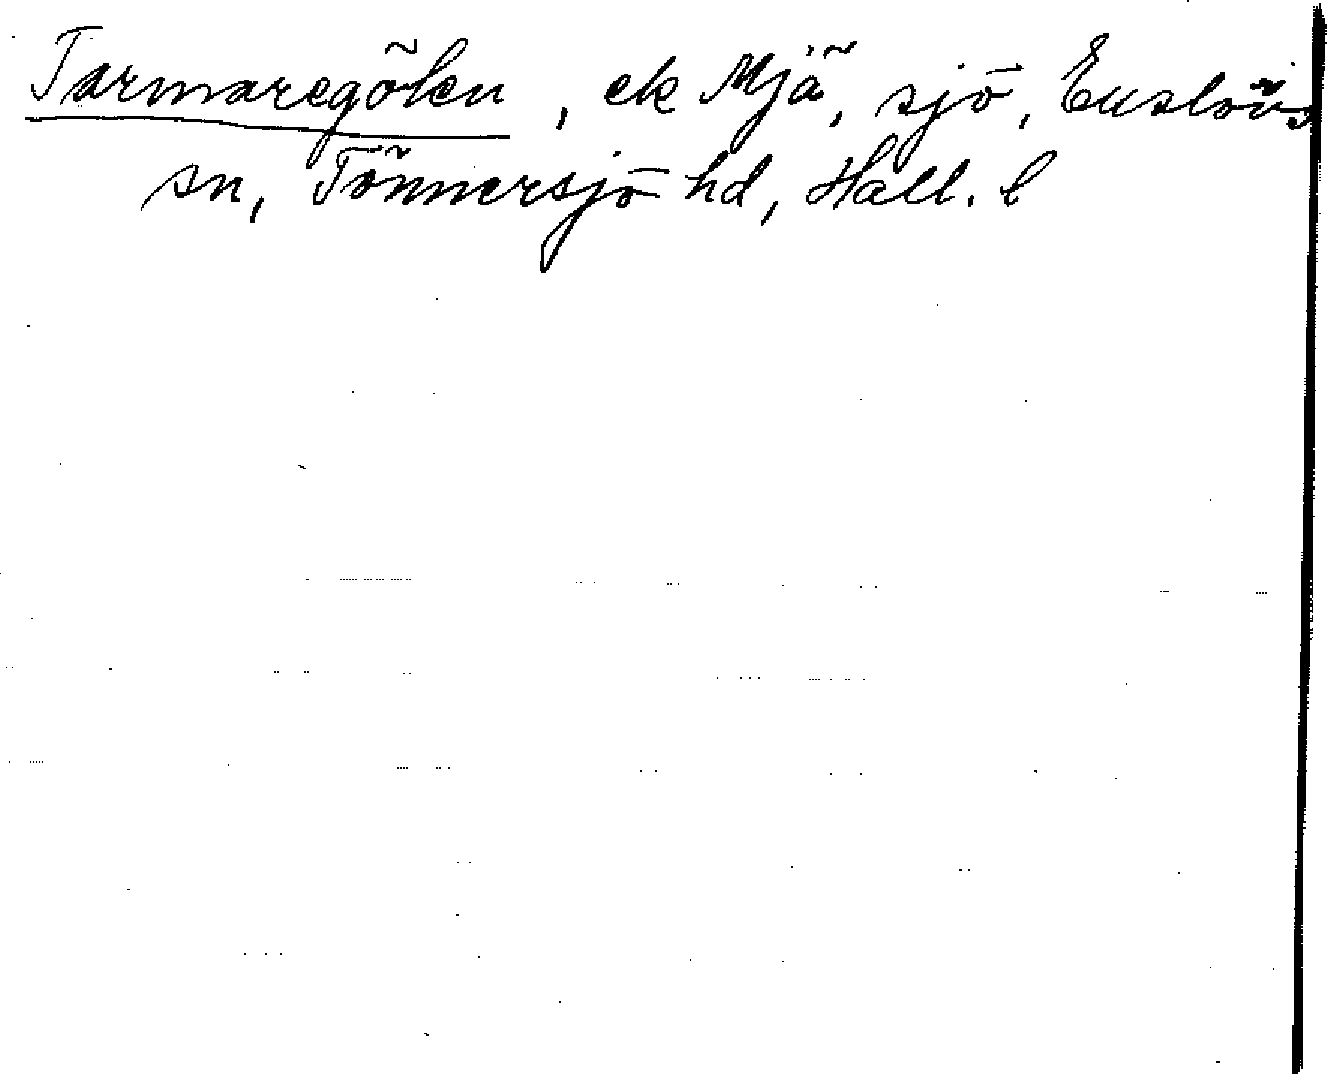 Tarmaregölen, ek Mjä, sjö, Enslövs
sn, Tönnersjö hd, Hall. l